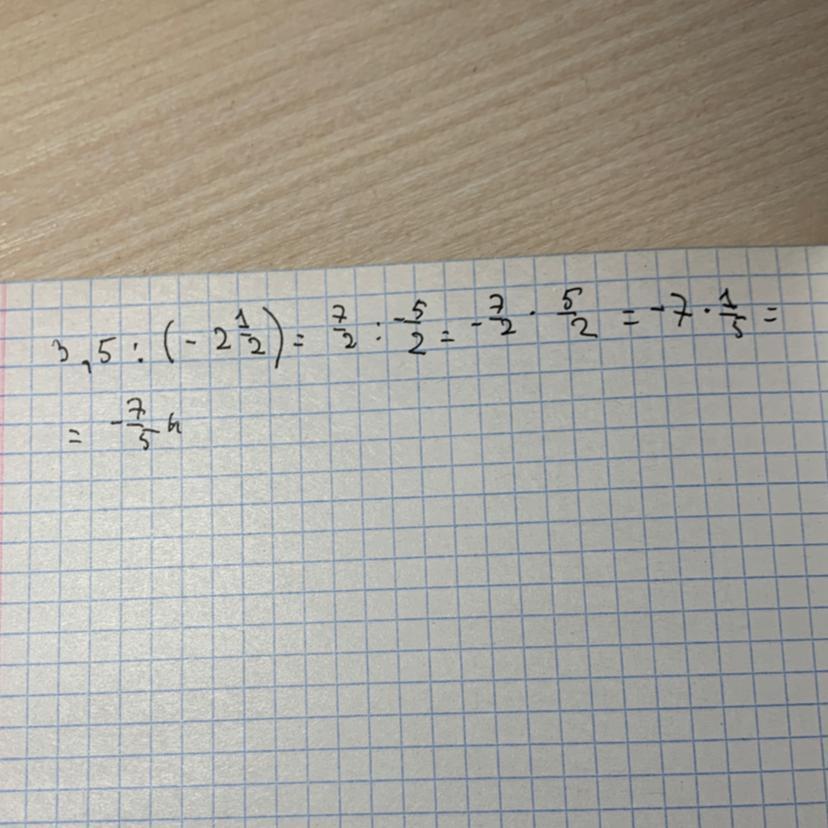 3,5 : (-2 1/2) = 7/2 : -5/2 = -7/2 · 5/2 = -7 · 1/5 =
= -7/5